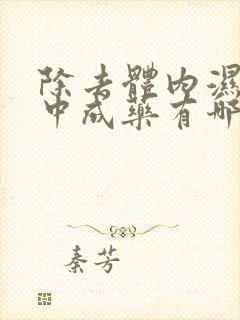 除去體內濕
中成藥有哪
秦芳